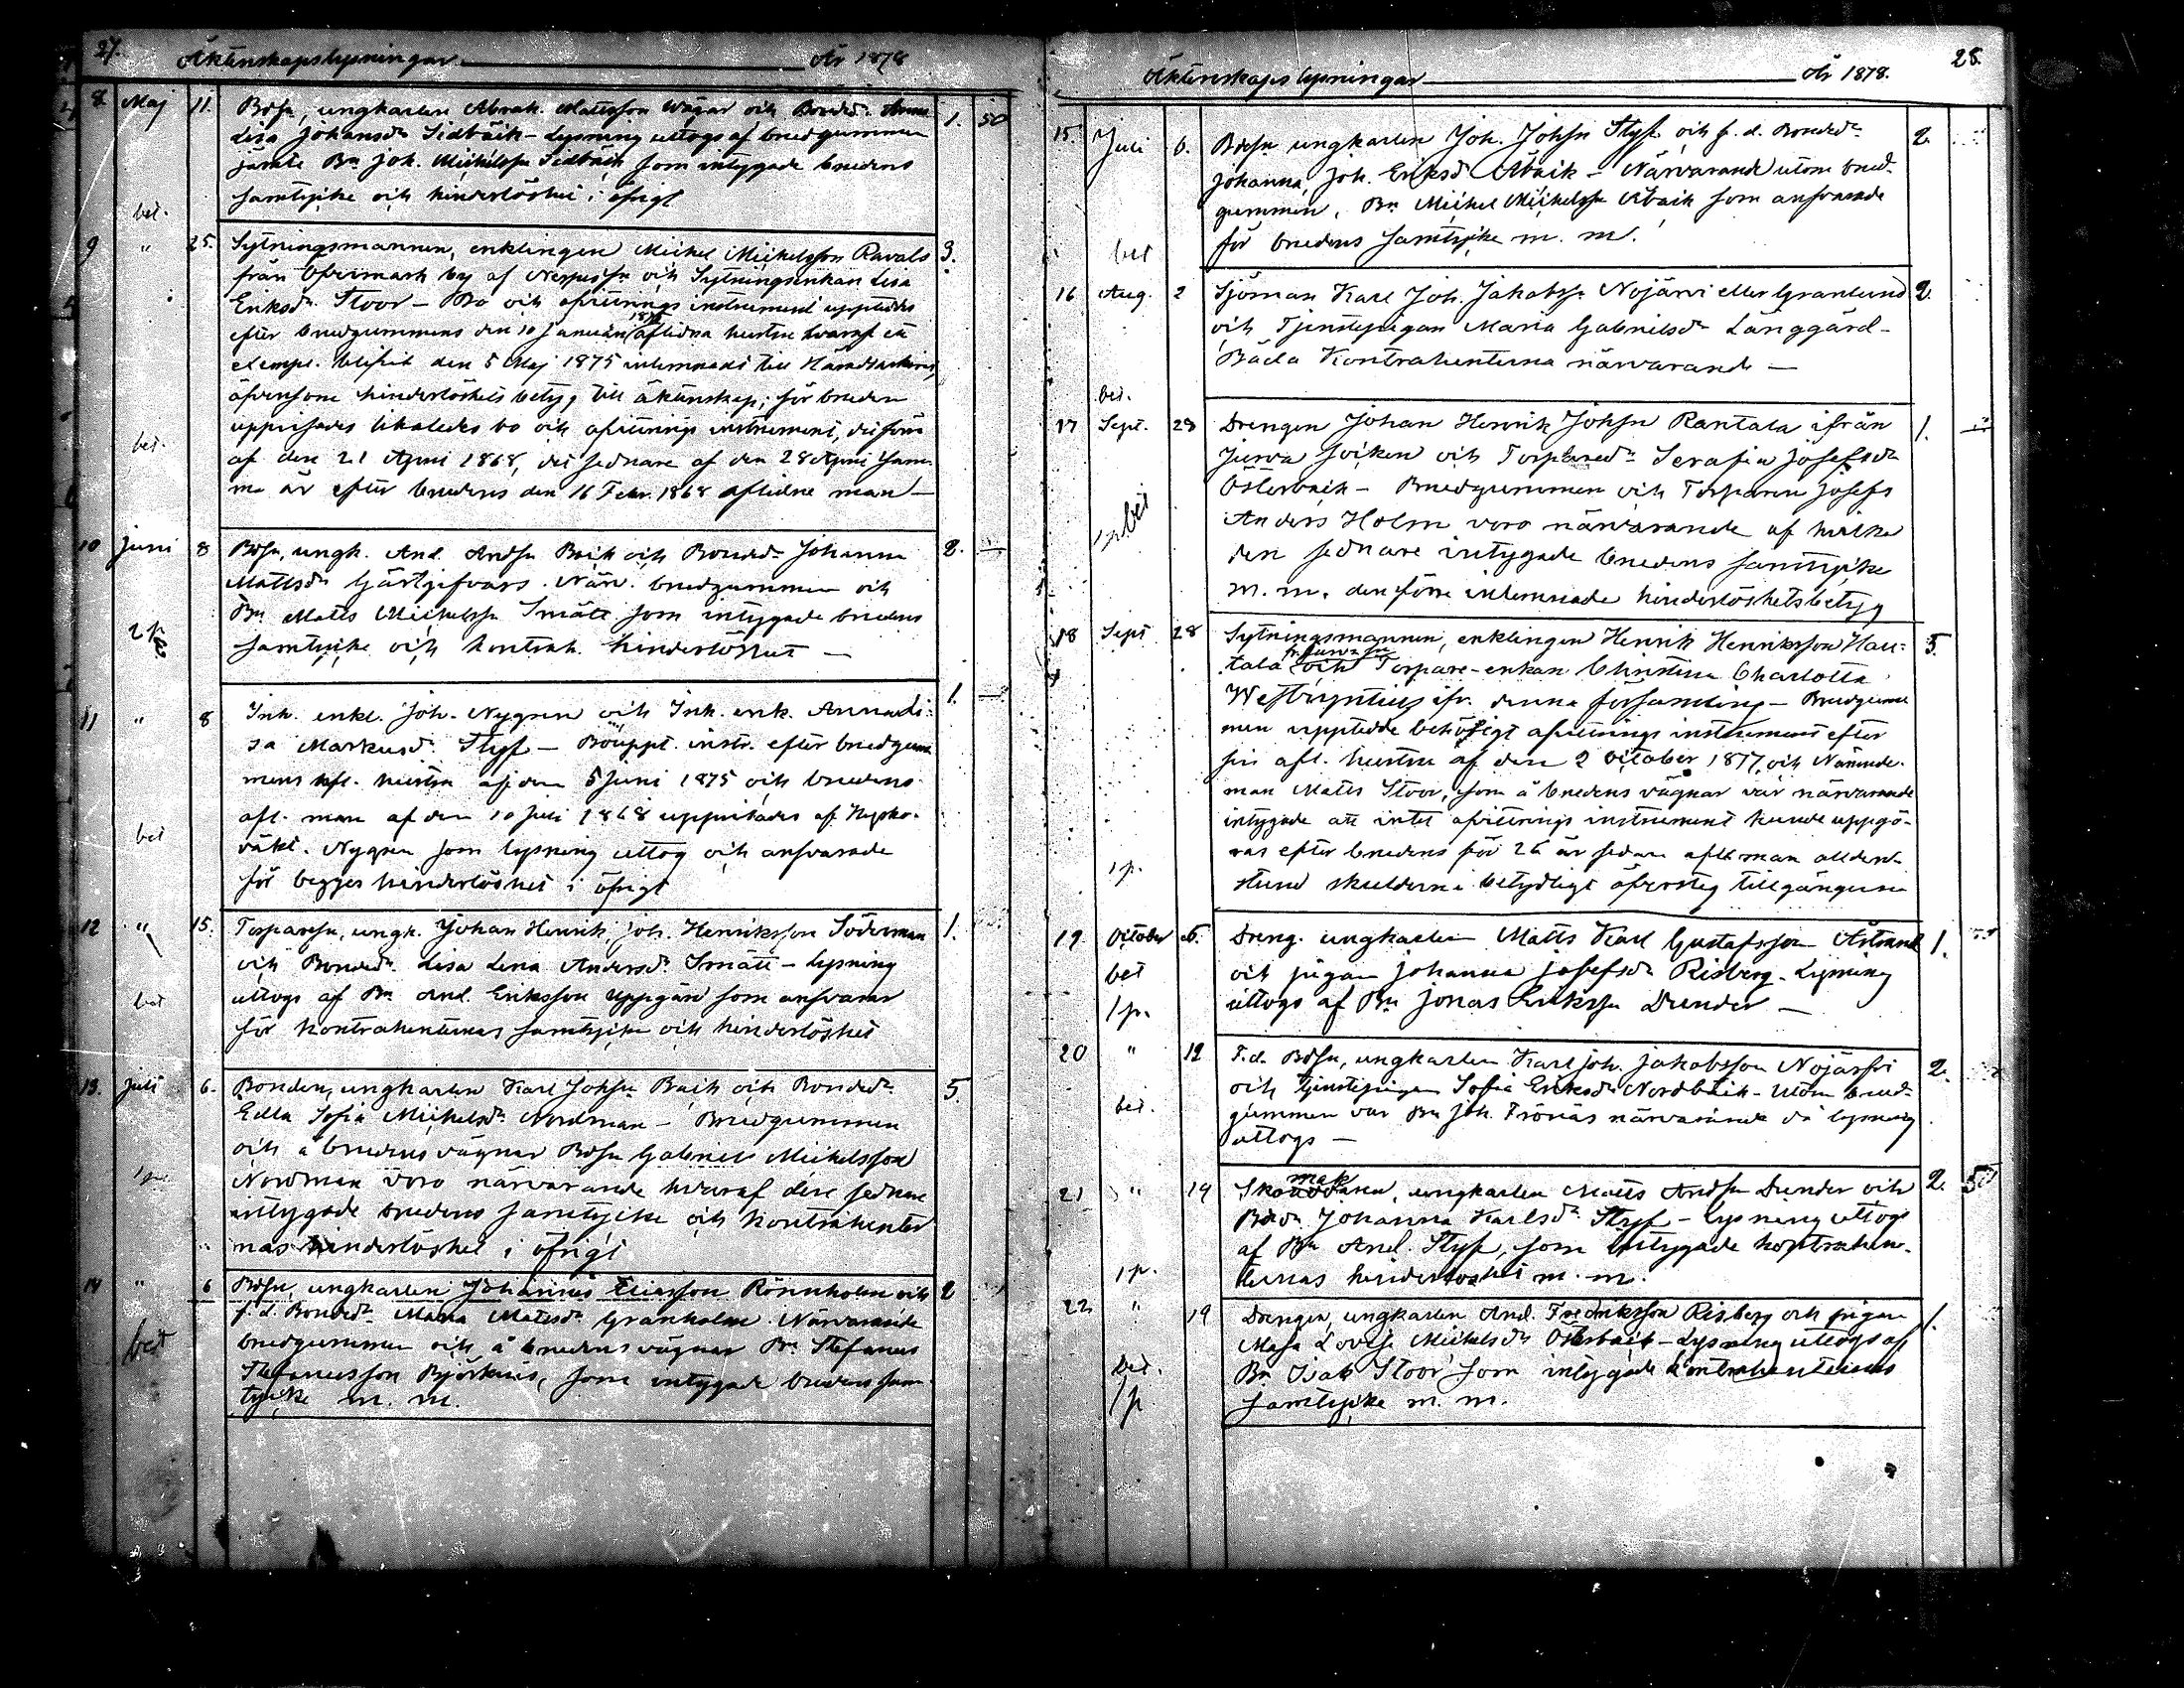 27.
Äktenskapslysningar År 1878
8. Maj 11. Bdsn, ungkarlen Abrah. Mattsson Wägar och Bonded. Anna 1. 50
Lisa Johansdr Sidbäck - Lysning uttogs af brudgummen
jämte Bn Joh. Mickelsson Sidbäck som intygade brudens
samtycke och hinderlöshet i öfrigt
bet.
9 " 25. Sytningsmannen, enklingen Mickel Mickelsson Ravals 3.
från Öfvermark by af Nerpessn och Sytningsenkan Lisa
Eriksdr Stoor - Bo och afvittrings instrument uppteddes
efter brudgummens den 10 Januari aflidna hustru hvaraf ett
exempl. blifvit den 5 Maj 1875 inlemnadt till Häradsskrifv,
äfvensom hinderlöshets betyg till äktenskap; för bruden
uppvisades likaledes bo och afvittrings instrument, det förra
bet.
af den 21 April 1868, det sednare af den 28 April sam-
ma år efter brudens den 16 Febr. 1868 aflidne man -
10 Juni 8 Bdsn, ungk. And. Andsn Bäck och Bonded. Johanna 2. -
Mattsdr Gästgifvars. Närv. brudgummen och
Bn Matts Mickelssn Smått som intygade brudens
samtycke och kontrah. hinderlöshet -
11 " 8 Inh. enkl. Joh. Nygren och Inh. enk. Anna Li- 1. -
sa Markusdr Styf - Bouppt. instr. efter brudgum-
mens afl. hustru af den 5 Juni 1875 och brudens
afl. man af den 10 Juli 1868 uppvisades af
bet
väkt. Nygren som lysning uttog och ansvarade
för begges hinderlöshet i öfrigt
12 " 15. Torparesn, ungk. Johan Henrik Joh. Henriksson Söderman 1.
och Bonded. Lisa Lena Andersdr Smått - Lysning
bet
uttogs af Bn And. Eriksson Uppgård som ansvarar
för kontrahenternas samtycke och hinderlöshet
13. Juli 6. Bonden, ungkarlen Karl Johsn Bäck och Bonded. 5
Edla Sofia Mickelsdr Nordman - Brudgummen
och å brudens vägnar Bdsn Gabriel Mickelsson
Nordman voro närvarande hvaraf den sednare
intygade brudens samtycke och kontrahenter
nas hinderlöshet i öfrigt
14 " 6 Bdsn, ungkarlen Johannes Eliasson Rönnholm och 2
f.d. Bonded. Maria Mattsdr Granholm. Närvarande
bet
brudgummen och å brudens vägnar Bn Stefanus
Stefanusson Björknäs, som intygade brudens sam-
tycke m. m.
28.
Äktenskaps lysningar År 1878.
15. Juli 6. Bdsn ungkarlen Joh. Johsn Styf och f. d. Bonded. 2.
Johanna Joh. Eriksdr Åbäck - Närvarande utom brud-
gummen, Bn Mickel Mickelssn Åbäck som ansvarade
bet
för brudens samtycke m. m.
16 Aug. 2 Sjöman Karl Joh. Jakobssn Nojärvi eller Granlund 2.
och Tjenstepigan Maria Gabrielsdr Långgärd -
Båda Kontrahenterna närvarande -
bet.
17 Sept. 28 Drengen Johan Henrik Johsn Rantala ifrån 1.
Jurva socken och Torpared. Serafia Josefsdr
Österback - Brudgummen och Torparen Josefs
Anders Holm voro närvarande af hvilka
den sednare intygade brudens samtycke
m. m. den förre inlemnade hinderlöshetsbetyg
18 Sept 28 Sytningsmannen, enklingen Henrik Henriksson Hau- 5.
tala fr. Jurva sn och Torpare-enkan Christina Charlotta
Westbyntius ifr. denna församling - Brudgum
men upptedde behöfligt afvittrings instrument efter
sin afl. hustru af den 2 October 1877, och Nämnde-
man Matts Stoor, som å brudens vägnar var närvarande
intygade att intet afvittrings instrument kunde uppgö-
1 p.
ras efter brudens för 26 år sedan afl. man allden-
stund skulderna betydligt öfversteg tillgångarna
19. October 5. Dreng. ungkarlen Matts Karl Gustafsson Åstrand 1.
bet
och pigan Johanna Josefsdr Risberg - Lysning
1 p.
uttogs af Bn Jonas Erikssn Dunder -
20 " 12 F.d. Bdsn, ungkarlen Karl Joh. Jakobsson Nojärfvi 2.
och tjenstepigan Sofia Eriksdr Nordbäck - Utom brud-
bet.
gummen var Bn Joh. Frönäs närvarande då lysning
uttogs -
21 " 19 Skomakaren, ungkarlen Matts Andsn Dunder och 2. 50
Bdr. Johanna Karlsdr Styf - lysning uttogs
af Bn And. Styf, som intygade kontrahen-
1 p.
ternas hinderlöshet m. m.
22 " 19 Drengen, ungkarlen And. Fredriksson Risberg och pigan 1.
Maja Lovisa Mickelsdr Österback - Lysning uttogs af
bet.
Bn Isak Stoor som intygade kontrahenternas
1 p.
samtycke m. m.